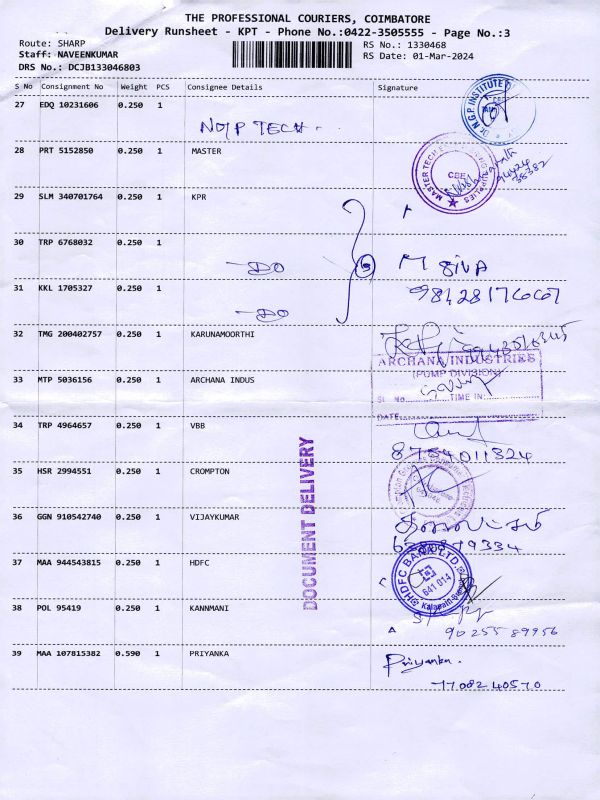 THE PROFESSIONAL COURIERS, COIMBATORE
Delivery Runsheet - KPT - Phone No.:0422-3505555 - Page No.:3
Route: SHARP
Staff: NAVEENKUMAR
DRS No.: DCJB133046803
RS No.: 1330468
RS Date: 01-Mar-2024
S No Consignment No Weight PCS Consignee Details Signature
27 EDQ 10231606 0.250 1
DR. N.G.P. INSTITUTE
28 PRT 5152850 0.250 1 MASTER
CBE
29 SLM 340701764 0.250 1 KPR
30 TRP 6768032 0.250 1
DO
M SIVA
31 KKL 1705327 0.250 1
DO
32 TMG 200402757 0.250 1 KARUNAMOORTHI
33 MTP 5036156 0.250 1 ARCHANA INDUS
ARCHANA INDUSTRIES
(PUMP DIVISION)
Sl No. TIME IN:
DATE
34 TRP 4964657 0.250 1 VBB
8754011324
35 HSR 2994551 0.250 1 CROMPTON
36 GGN 910542740 0.250 1 VIJAYKUMAR
37 MAA 944543815 0.250 1 HDFC
HDFC BANK LTD.
641 014
38 POL 95419 0.250 1 KANNMANI
90255 89956
39 MAA 107815382 0.590 1 PRIYANKA
Priyanka.
77082 40570
DOCUMENT DELIVERY